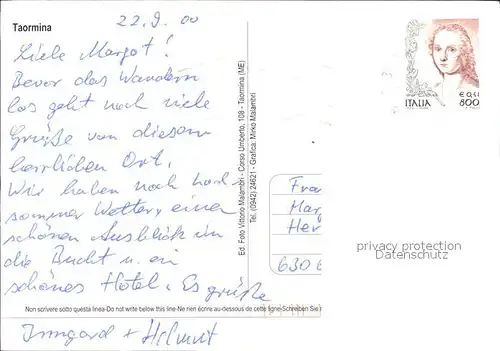 Taormina
22.9.00
Liebe Margot!
Bevor das Wandern
los geht noch viele
Grüße von diesem
herrlichen Ort.
Wir haben noch hoch-
sommer Wetter, einen
schönen Ausblick in
die Bucht u. ein
schönes Hotel. Es grüße
Non scrivere sotto questa linea-Do not write below this line-Ne rien écrire au-dessous de cette ligne-Schreiben Sie
Irmgard + Helmut
Ed. Foto Vittorio Malambrì - Corso Umberto, 108 - Taormina (ME)
Tel. (0942) 24621 - Grafica: Mirko Malambrì
ITALIA
€ 0,41
800
Fra
Mar
Her
6306
privacy protection
Datenschutz